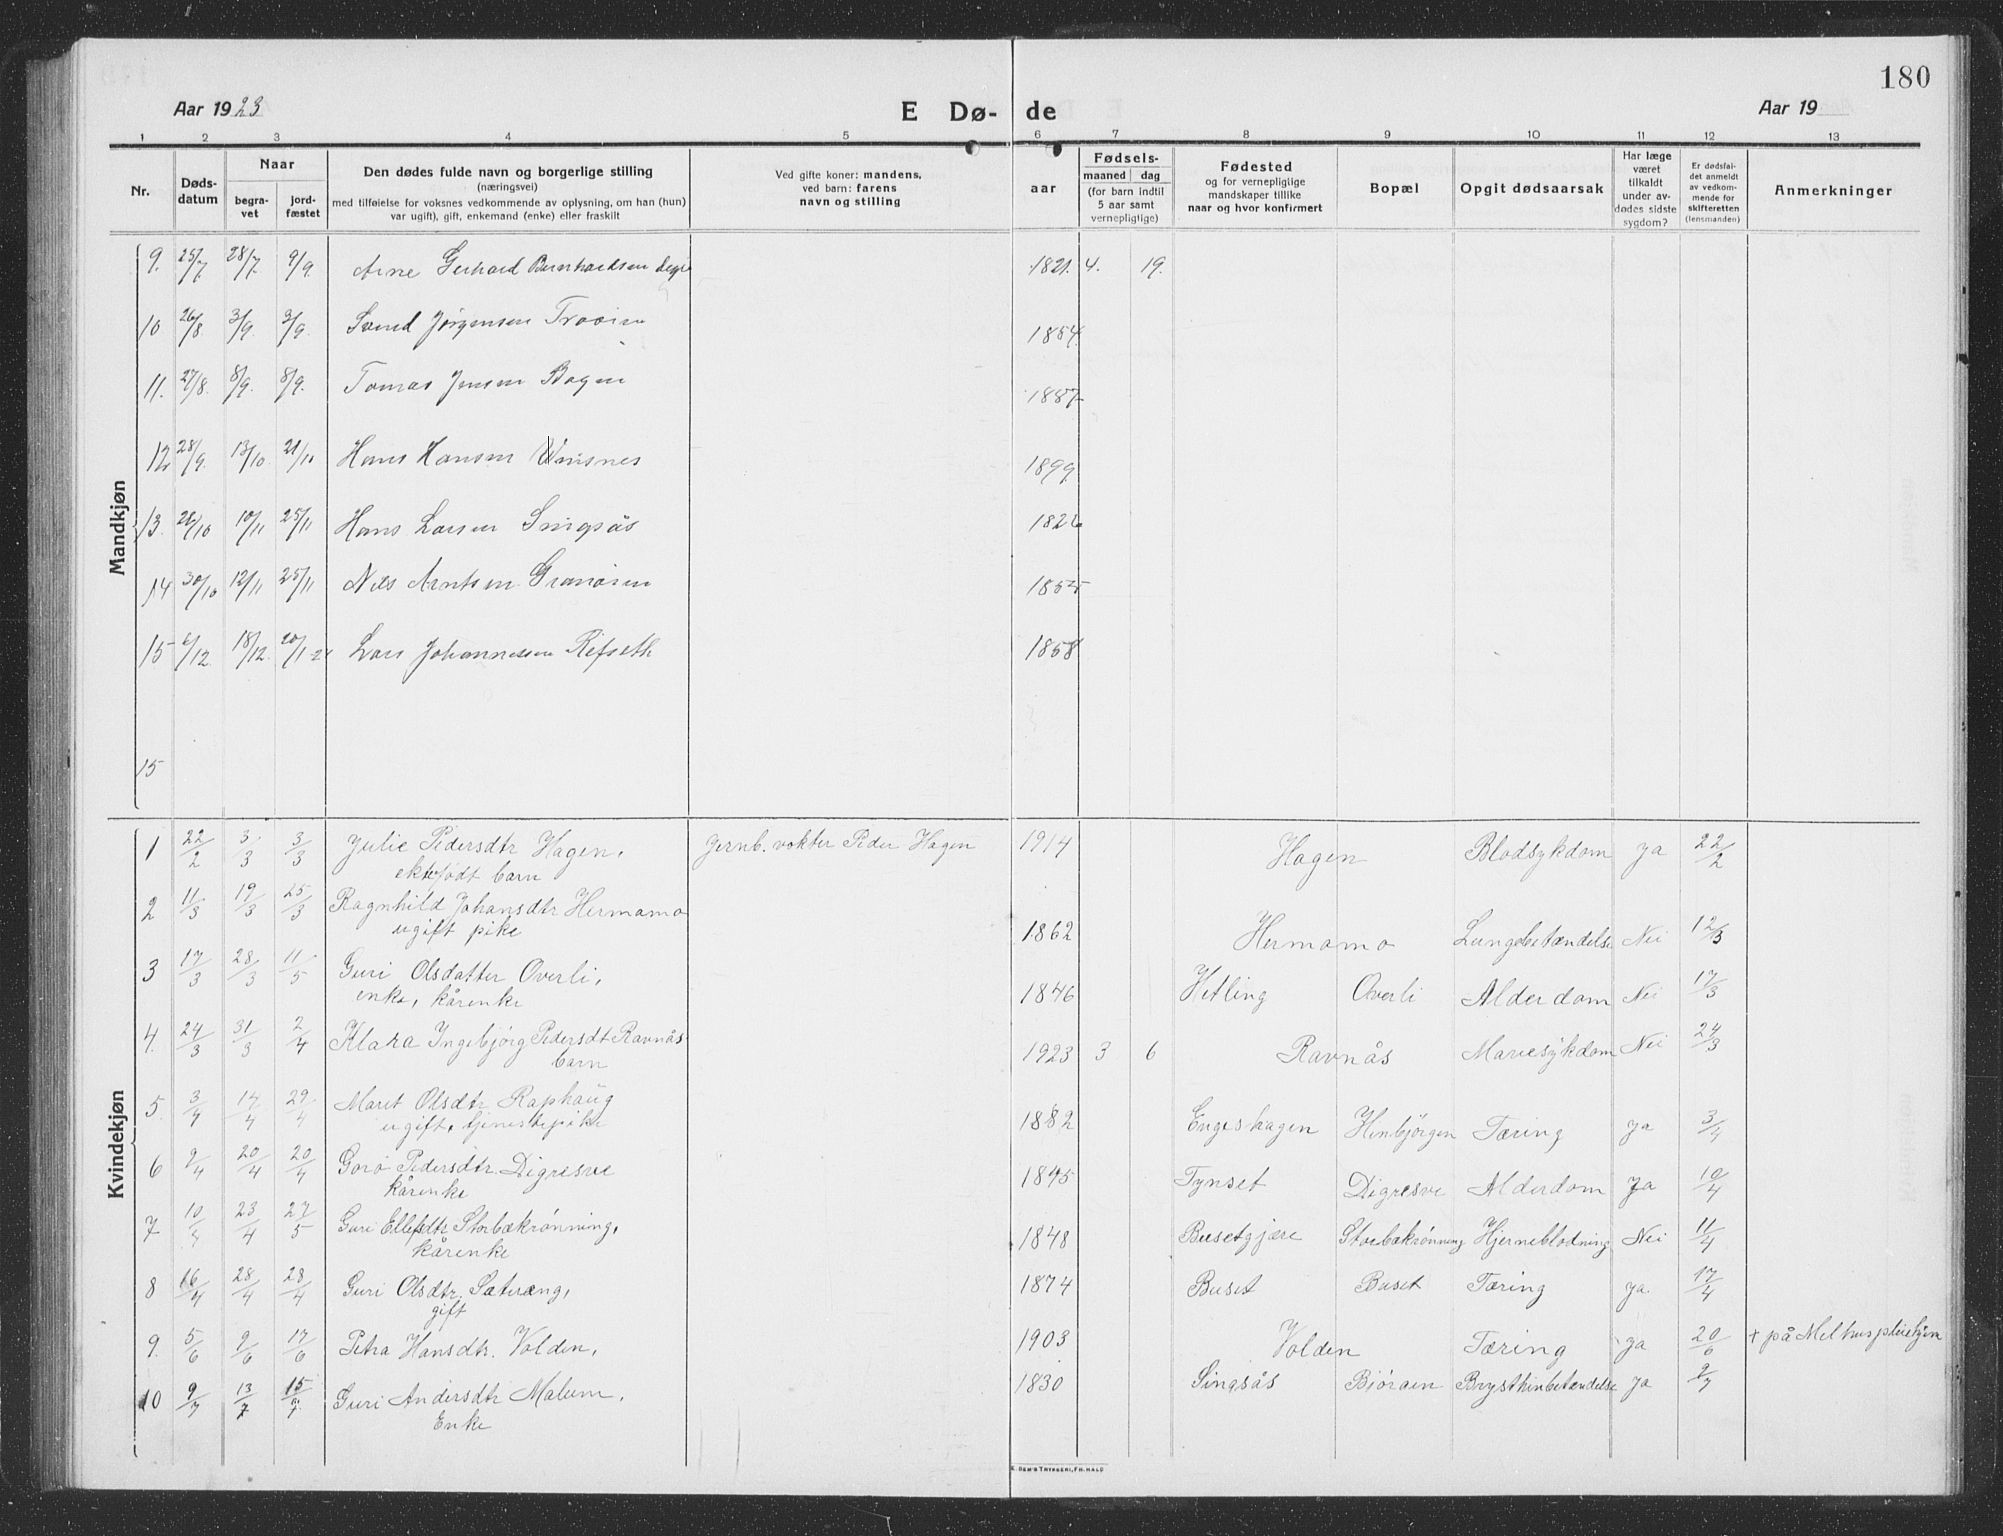 180
Aar 1923 E Dø- de Aar 19
1 2 3 4 5 6 7 8 9 10 11 12 13
Nr.
Døds-
datum
Naar
begra-
vet
jord-
fæstet
Den dødes fulde navn og borgerlige stilling
(næringsvei)
med tilføielse for voksnes vedkommende av oplysning, om han (hun)
var ugift), gift, enkemand (enke) eller fraskilt
Ved gifte koner: mandens,
ved barn: farens
navn og stilling
aar
Fødsels-
maaned dag
(for barn indtil
5 aar samt
vernepligtige)
Fødested
og for vernepligtige
mandskaper tillike
naar og hvor konfirmert
Bopæl
Opgit dødsaarsak
Har læge
været
tilkaldt
under av-
dødes sidste
sygdom?
Er dødsfal-
det anmeldt
av vedkom-
mende for
skifteretten
(lensmanden)
Anmerkninger
Mandkjøn
9. 25/7 28/7 9/9 Arne Gerhard Bernhardsen 1821. 4. 19.
10 26/8 3/9 3/9 Svend Jørgensen 1854
11. 27/8 8/9 8/9 Tomas Jensen Bogen 1887
12 28/9 13/10 21/10 Hans Hansen Winsnes 1899
13. 28/10 10/11 25/11 Hans Larsen Singsås 1826
14 30/10 12/11 25/11 Nils Arntsen Granøien 1855
15 6/12 18/12 20/1-24 Lars Johannessen Refseth 1858
15
Kvindekjøn
1 22/2 3/3 3/3 Julie Pedersdtr Hagen, Jernb. vokter Peder Hagen 1914 Hagen Blodsykdom ja 22/2
ektefødt barn
2 11/3 19/3 25/3 Ragnhild Johansdtr Hermamo 1862 Hermamo Lungebetændelse Nei 12/3
ugift pike
3 17/3 28/3 11/5 Guri Olsdatter Overli, 1846 Hetling Overli Alderdom Nei 17/3
enke, kårenke
4. 24/3 31/3 2/4 Klara Ingebjørg Pedersdt Ravnås 1923 3 6 Ravnås Mavesykdom Nei 24/3
barn
5. 3/4 14/4 29/4 Marit Olsdtr Raphaug 1882 Engeshagen Henbjørgen Tæring ja 3/4
ugift, tjenestepike
6 9/4 20/4 20/4 Goro Pedersdtr. Digresve 1845 Tynset Digresve Alderdom Ja 10/4
kårenke
7 10/4 23/4 27/5 Guri Ellefsdtr Storbækrønning, 1848 Busetgjære Storbækrønning Hjerneblødning Nei 11/4
kårenke
8 16/4 28/4 28/4 Guri Olsdtr. Sætereng, 1874 Buset Buset Tæring ja 17/4
gift
9. 5/6 9/6 17/6 Petra Hansdtr. Volden, 1903 Volden Tæring ja 20/6 + på Melhus pleiehjem
10 9/7 13/7 15/7 Guri Andersdtr Malum, 1830 Singsås Bjørgen Brysthinbetændelse ja 9/7
Enke